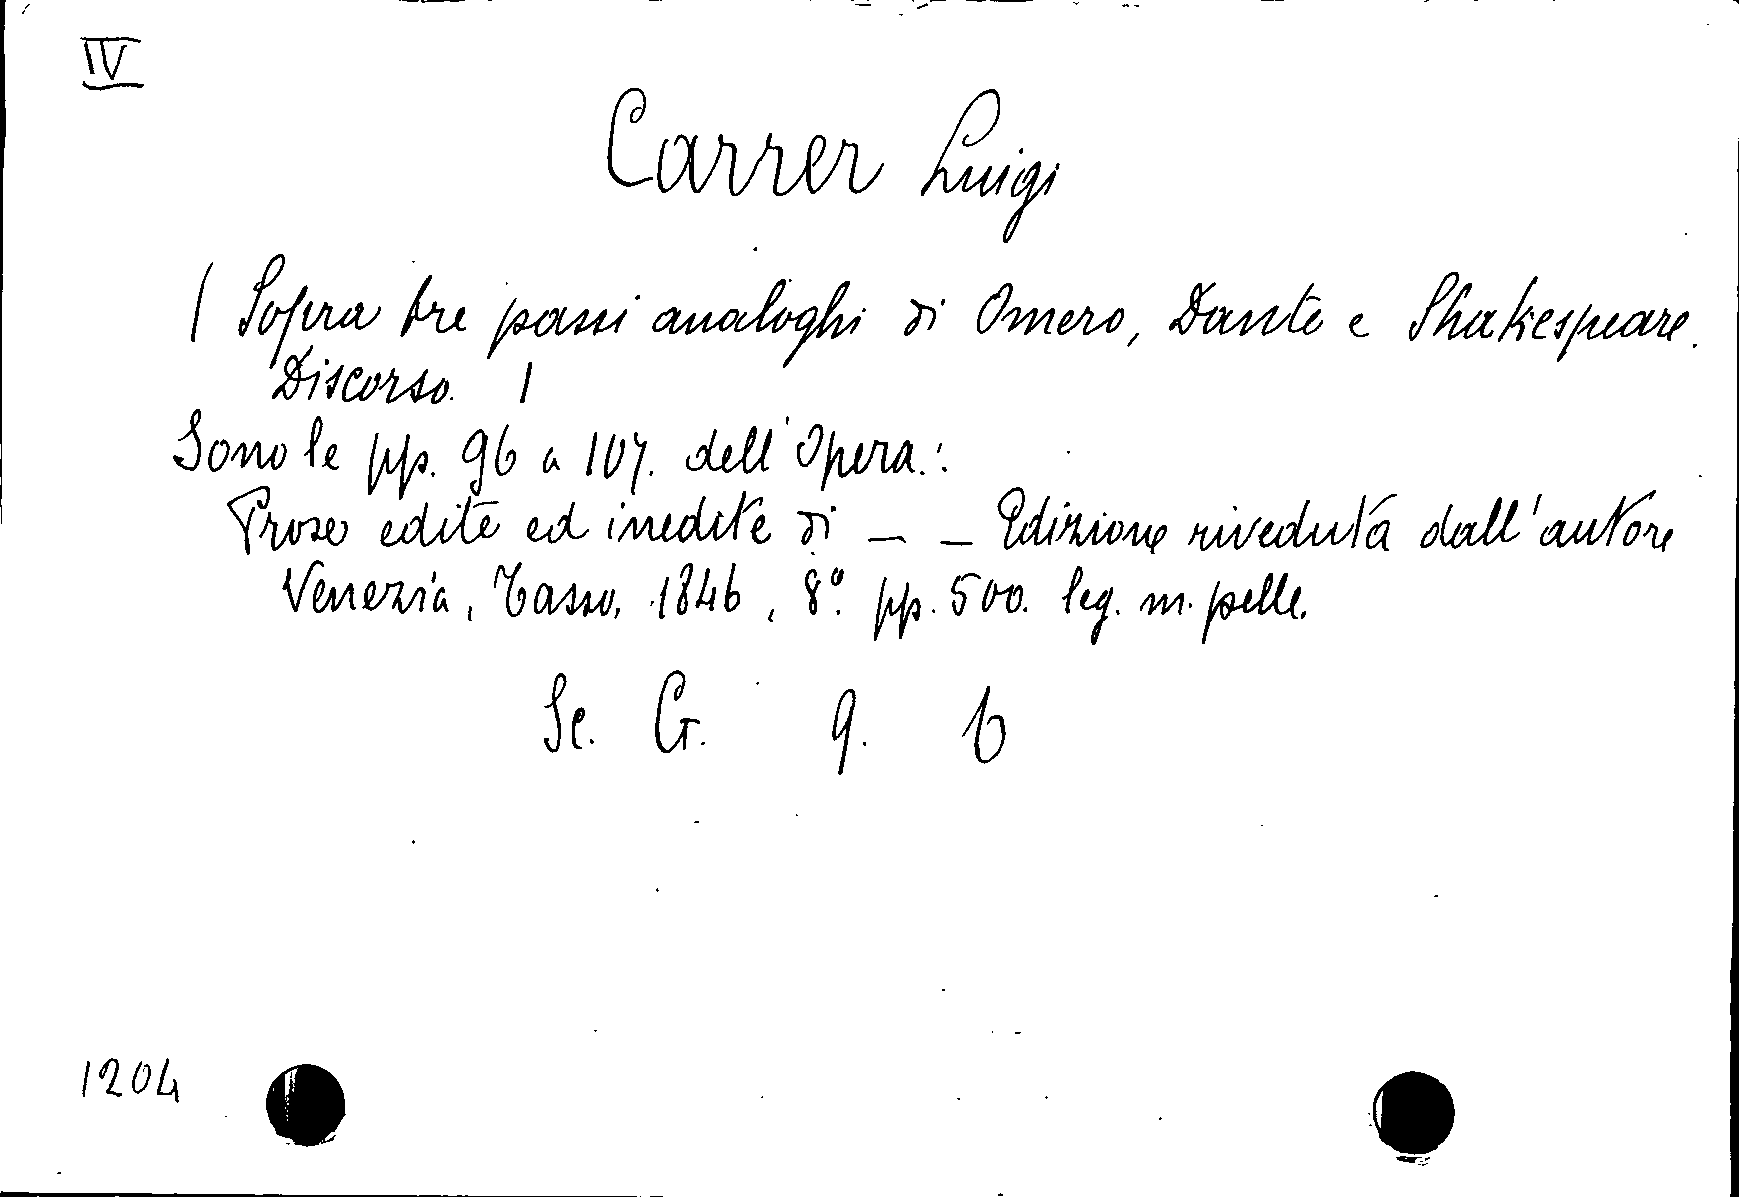 IV
Carrer Luigi
( Sopra tre passi analoghi di Omero, Dante e Shakespeare.
Discorso. )
Sono le pp. 96 a 107. dell'Opera:
Prose edite ed inedite di _ _ Edizione riveduta dall'autore
Venezia, Tasso, 1846, 8º. pp. 500. leg. m. pelle.
Se. G. 9. 6
1204